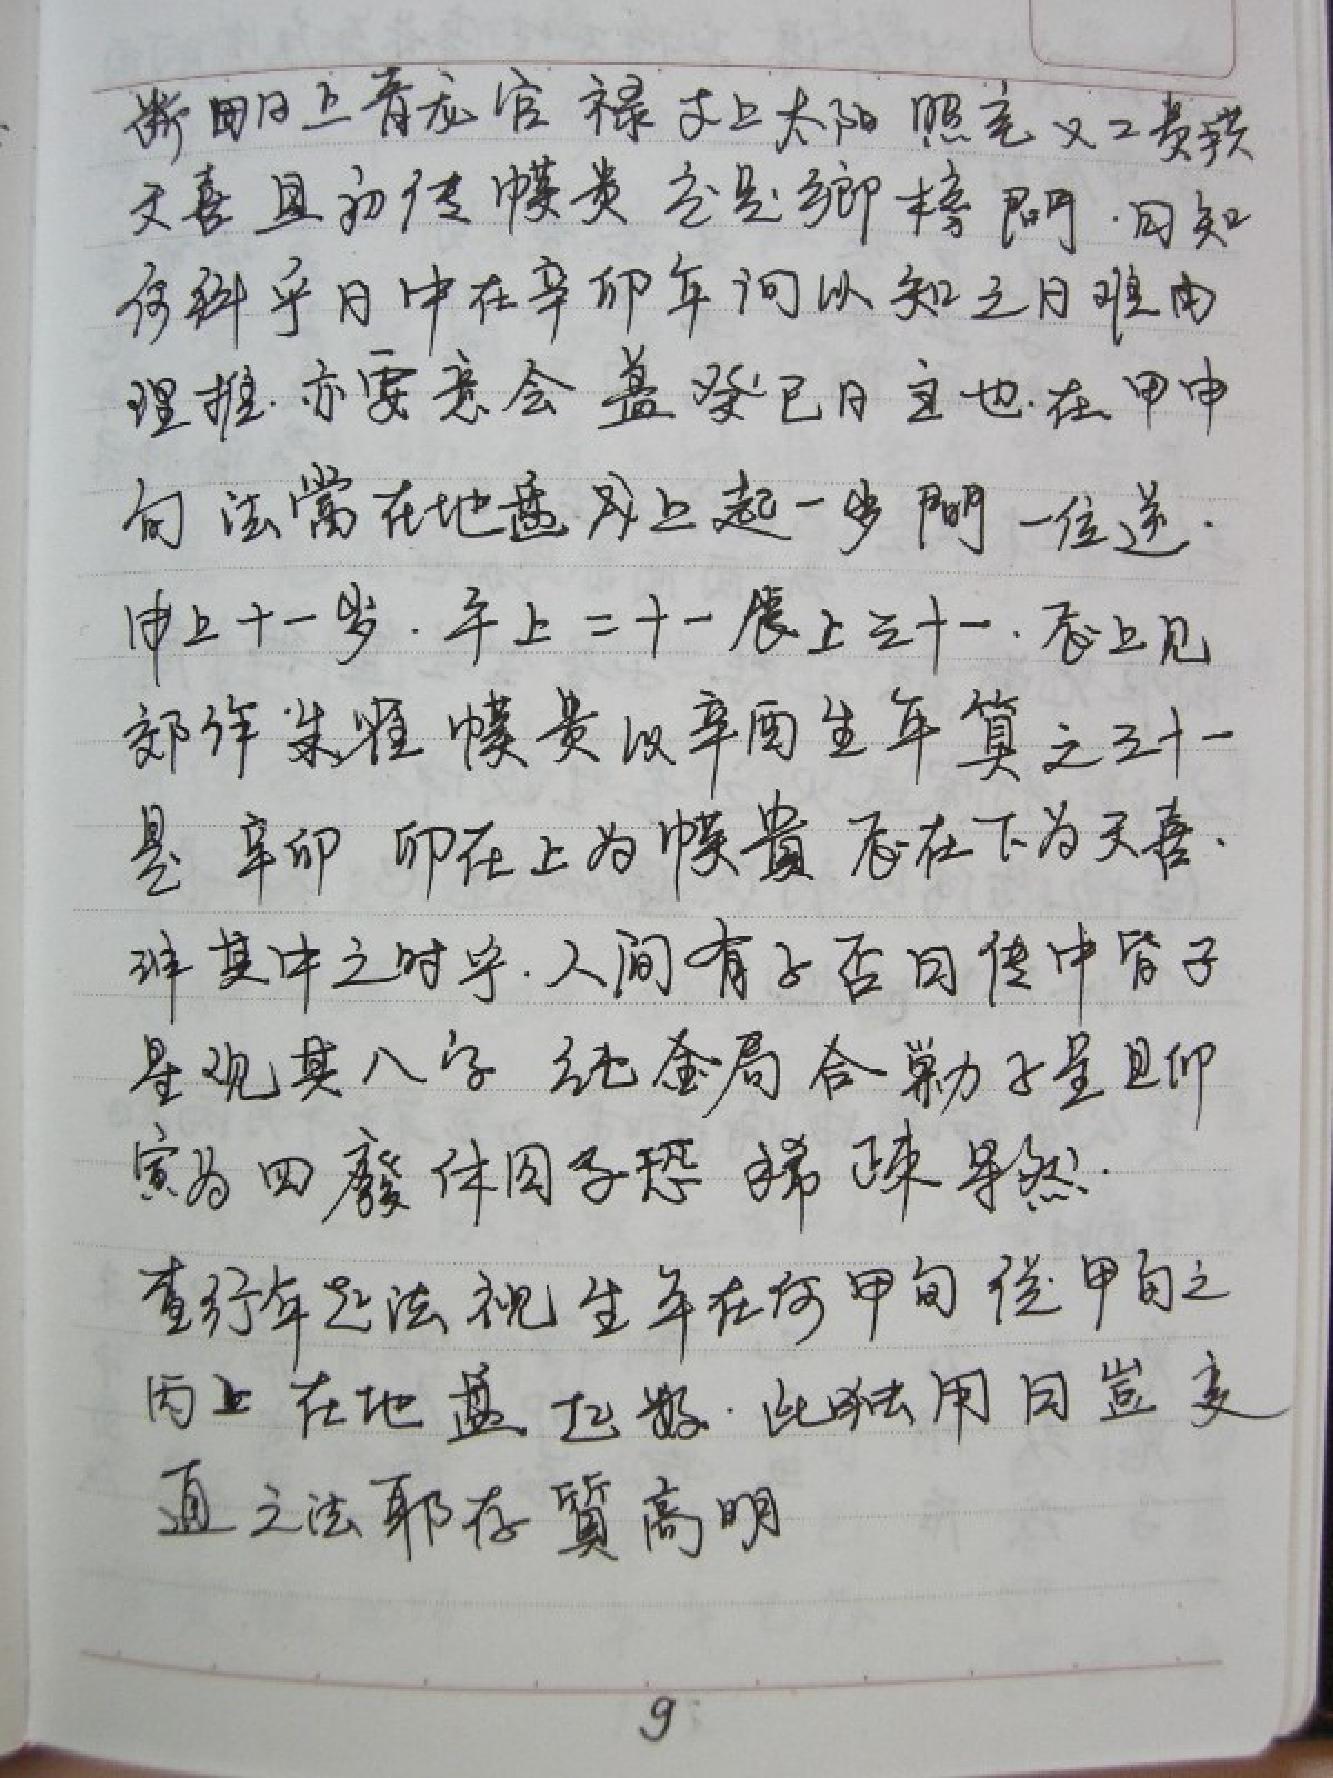 断曰日上青龙官禄支上太阳照宅又二贵拱
天喜且初传幕贵定是乡榜問·曰知
何科乎曰中在辛卯年问以知之曰难由
理推.亦要意会盖癸巳日主也.在甲申
旬法當在地盘戌上起一岁問一位逆·
申上十一岁.午上二十一辰上三十一.辰上见
卯作朱雀幕贵以辛酉生年算之三十一
是辛卯卯在上为幕貴辰在下为天喜.
非其中之时乎.人问有子否曰传中皆子
星观其八字纯金局合剿子星且卯
寅为四廢休囚子恐稀疎果然.
查行年起法视生年在何甲旬從甲旬之
丙上在地盖起數.此法用曰豈变
通之法耶存質高明
9